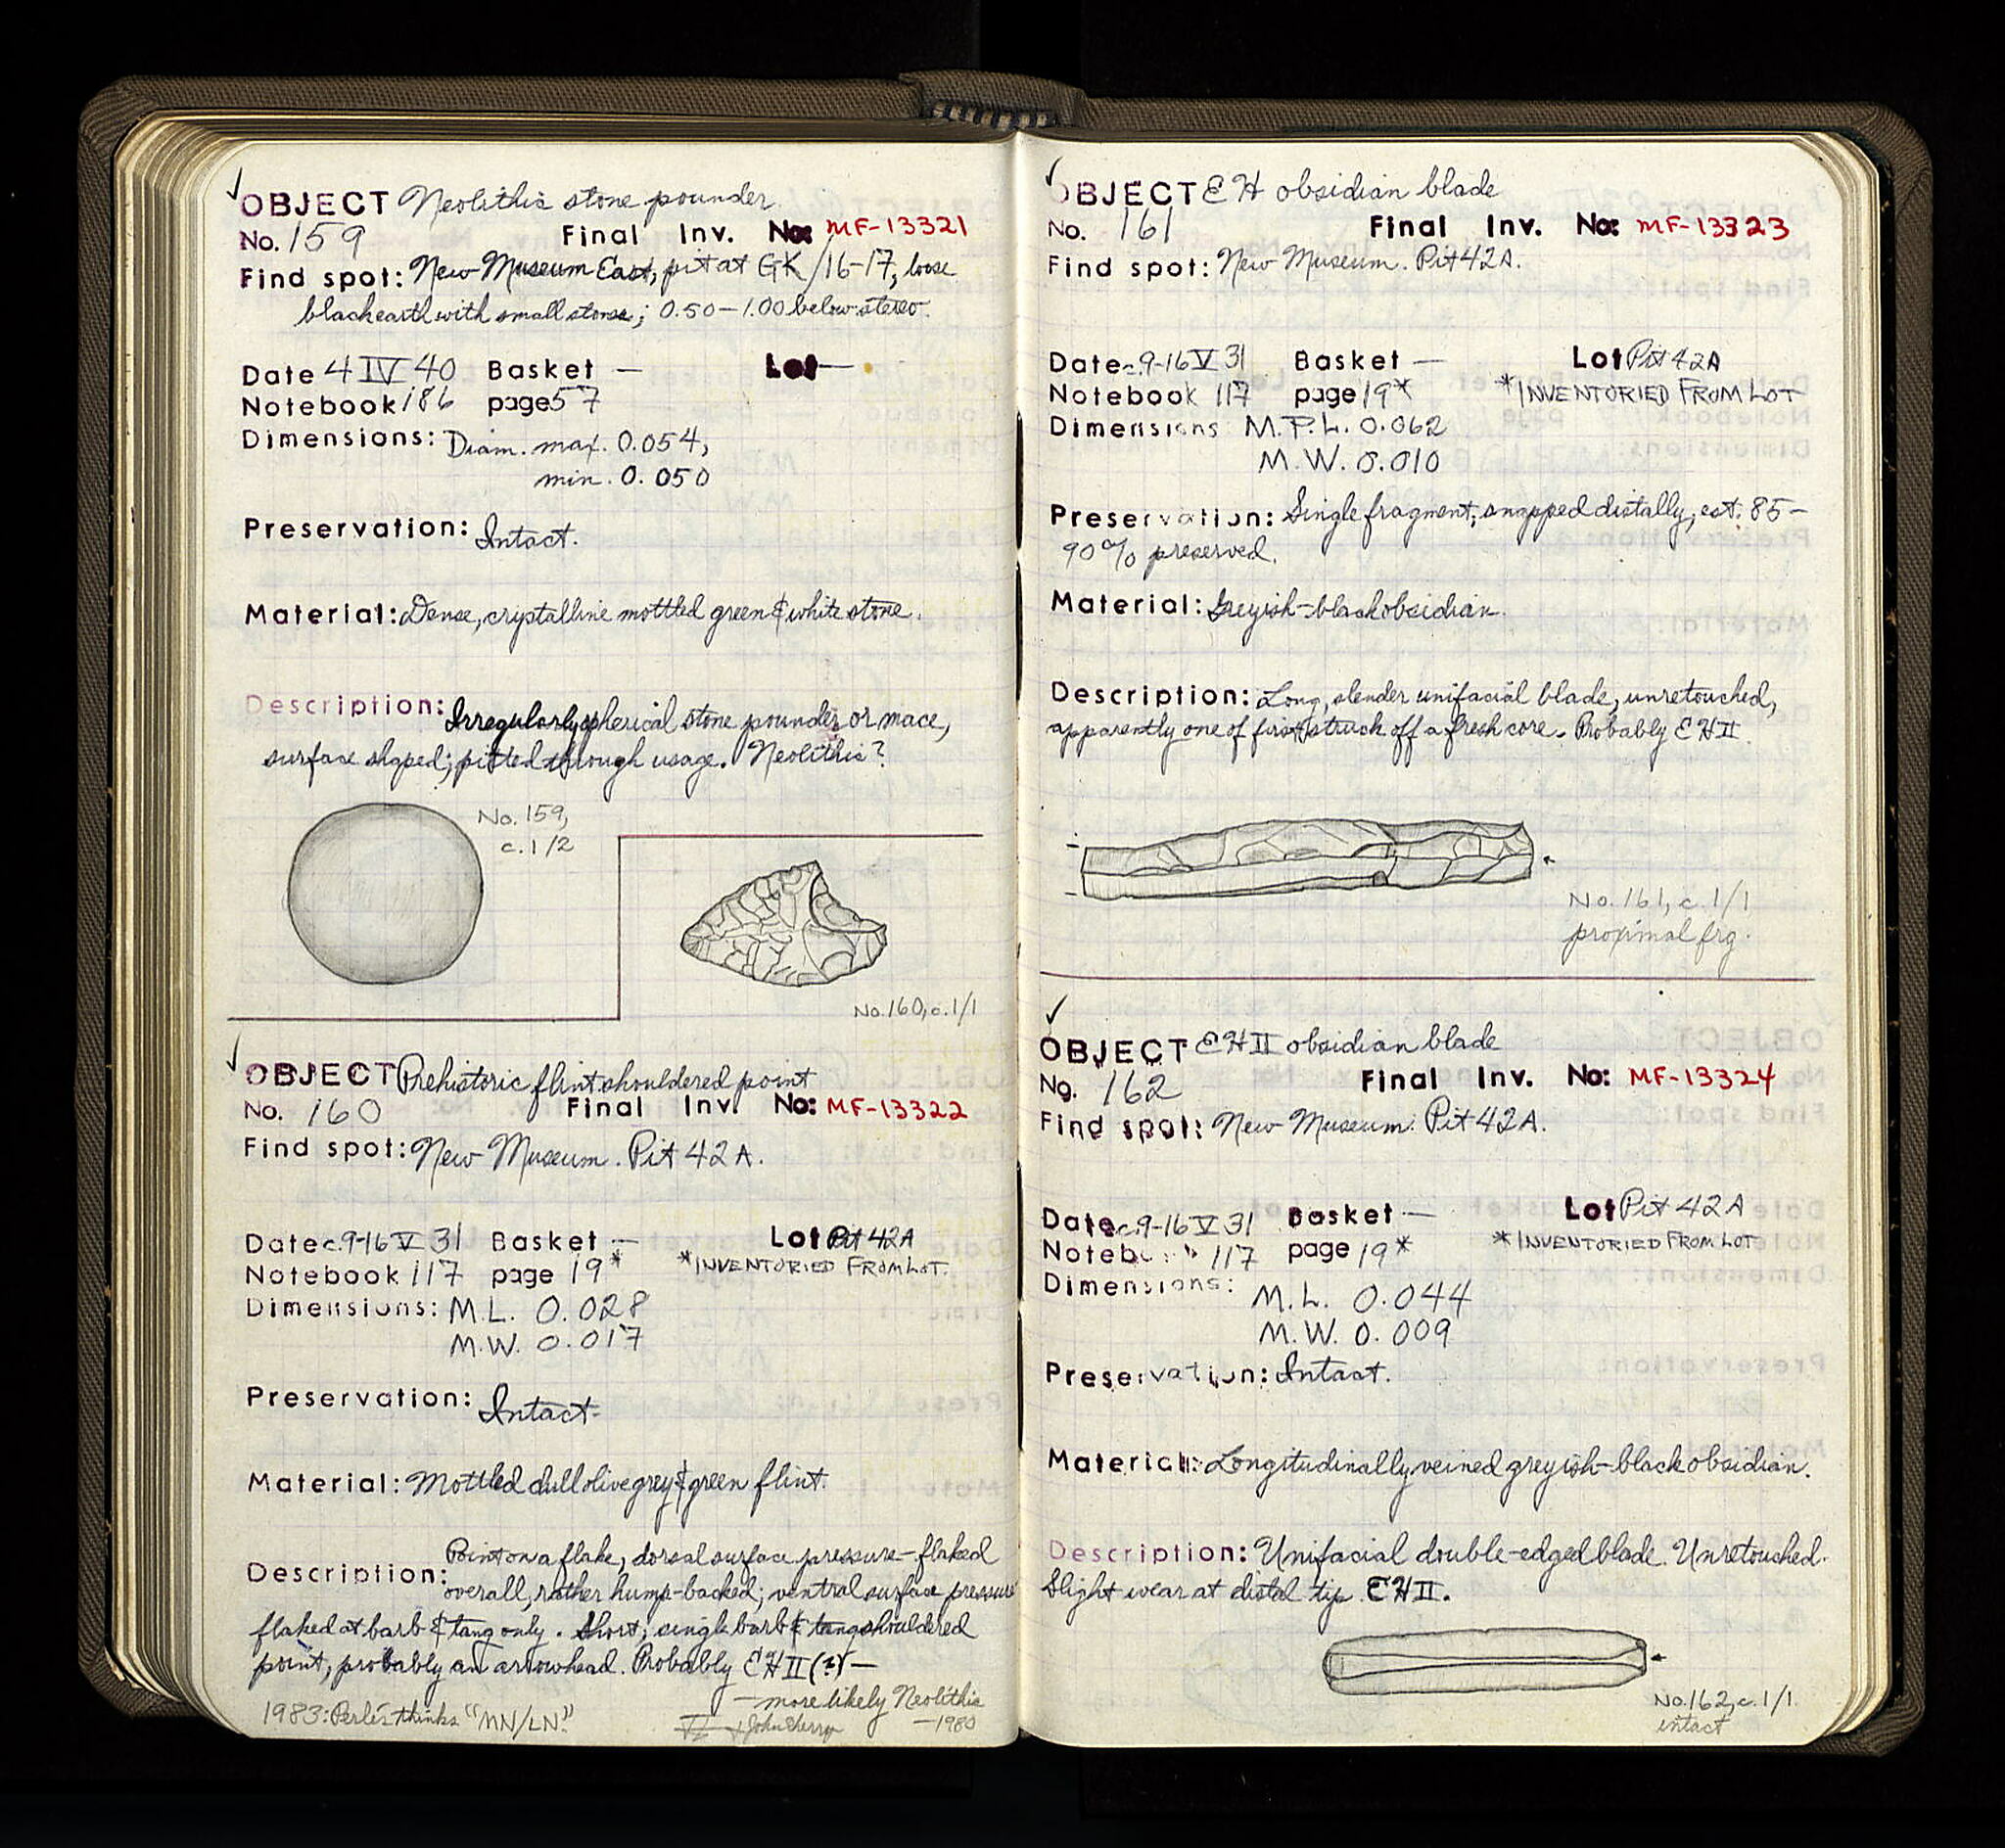 ✓
OBJECT Neolithic stone pounder
No. 159 Final Inv. No: MF-13321
Find spot: New Museum East, pit at GK/16-17, loose
black earth with small stones; 0.50-1.00 below stereo.
Date 4 IV 40 Basket — Lot —
Notebook 186 page 57
Dimensions: Diam. max. 0.054,
min. 0.050
Preservation: Intact.
Material: Dense, crystalline mottled green & white stone.
Description: Irregularly spherical stone pounder or mace,
surface shaped; pitted through usage. Neolithic?
No. 159,
c. 1/2
No. 160, c. 1/1
✓
OBJECT Prehistoric flint shouldered point
No. 160 Final Inv. No: MF-13322
Find spot: New Museum. Pit 42A.
Date c. 9-16 V 31 Basket — Lot Pit 42A
Notebook 117 page 19* *INVENTORIED FROM LOT.
Dimensions: M.L. 0.028
M.W. 0.017
Preservation: Intact.
Material: Mottled dull olive grey & green flint.
Description: Point on a flake, dorsal surface pressure-flaked
overall, rather hump-backed; ventral surface pressure
flaked at barb & tang only. Short, single barb & tang shouldered
point, probably an arrowhead. Probably EH II (?) —
— more likely Neolithic
1983: Perlès thinks "MN/LN" John Cherry — 1980
✓
OBJECT EH obsidian blade
No. 161 Final Inv. No: MF-13323
Find spot: New Museum. Pit 42A.
Date c. 9-16 V 31 Basket — Lot Pit 42A
Notebook 117 page 19* *INVENTORIED FROM LOT
Dimensions M.P.L. 0.062
M.W. 0.010
Preservation: Single fragment, snapped distally, est. 85-
90% preserved.
Material: Greyish-black obsidian.
Description: Long, slender unifacial blade, unretouched,
apparently one of first struck off a fresh core. Probably EH II.
No. 161, c. 1/1
proximal frg.
✓
OBJECT EH II obsidian blade
No. 162 Final Inv. No: MF-13324
Find spot: New Museum. Pit 42A.
Date c. 9-16 V 31 Basket — Lot Pit 42A
Notebook 117 page 19* *INVENTORIED FROM LOT
Dimensions: M.L. 0.044
M.W. 0.009
Preservation: Intact.
Material: Longitudinally veined greyish-black obsidian.
Description: Unifacial double-edged blade. Unretouched.
Slight wear at distal tip. EH II.
No. 162, c. 1/1
intact